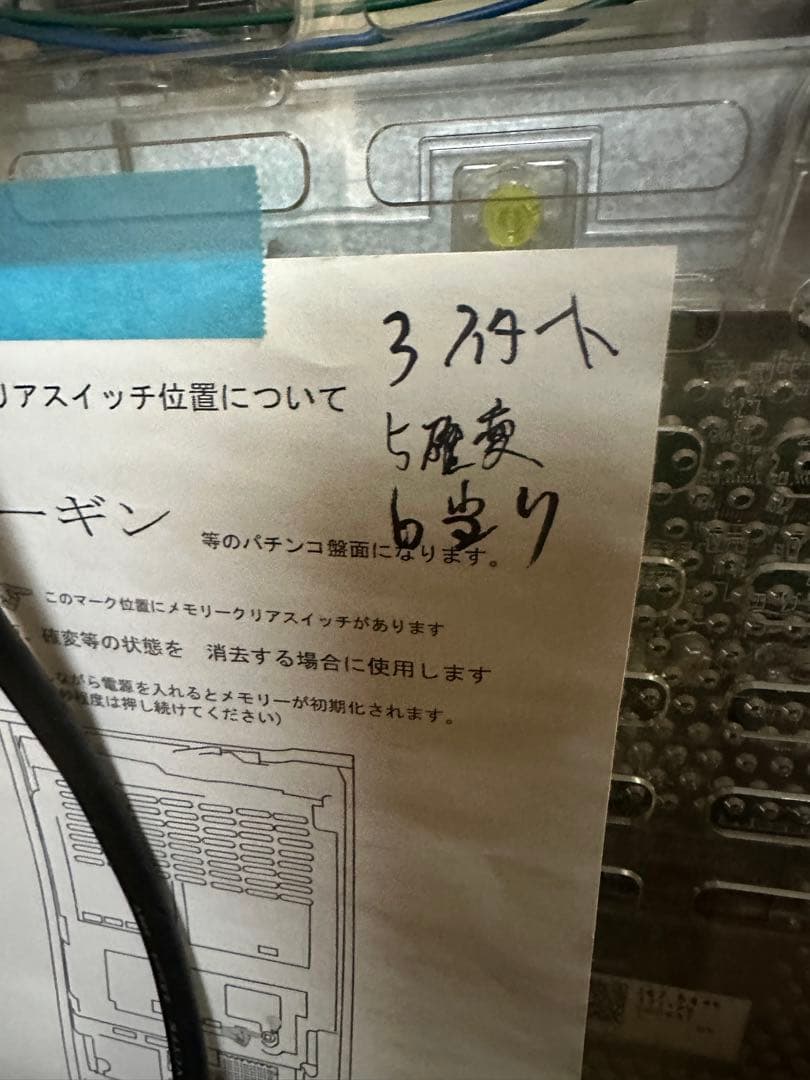 3 スタート
リアスイッチ位置について
5 確変
6 当り
ーギン 等のパチンコ盤面になります。
このマーク位置にメモリークリアスイッチがあります
確変等の状態を 消去する場合に使用します
ながら電源を入れるとメモリーが初期化されます。
秒程度は押し続けてください)